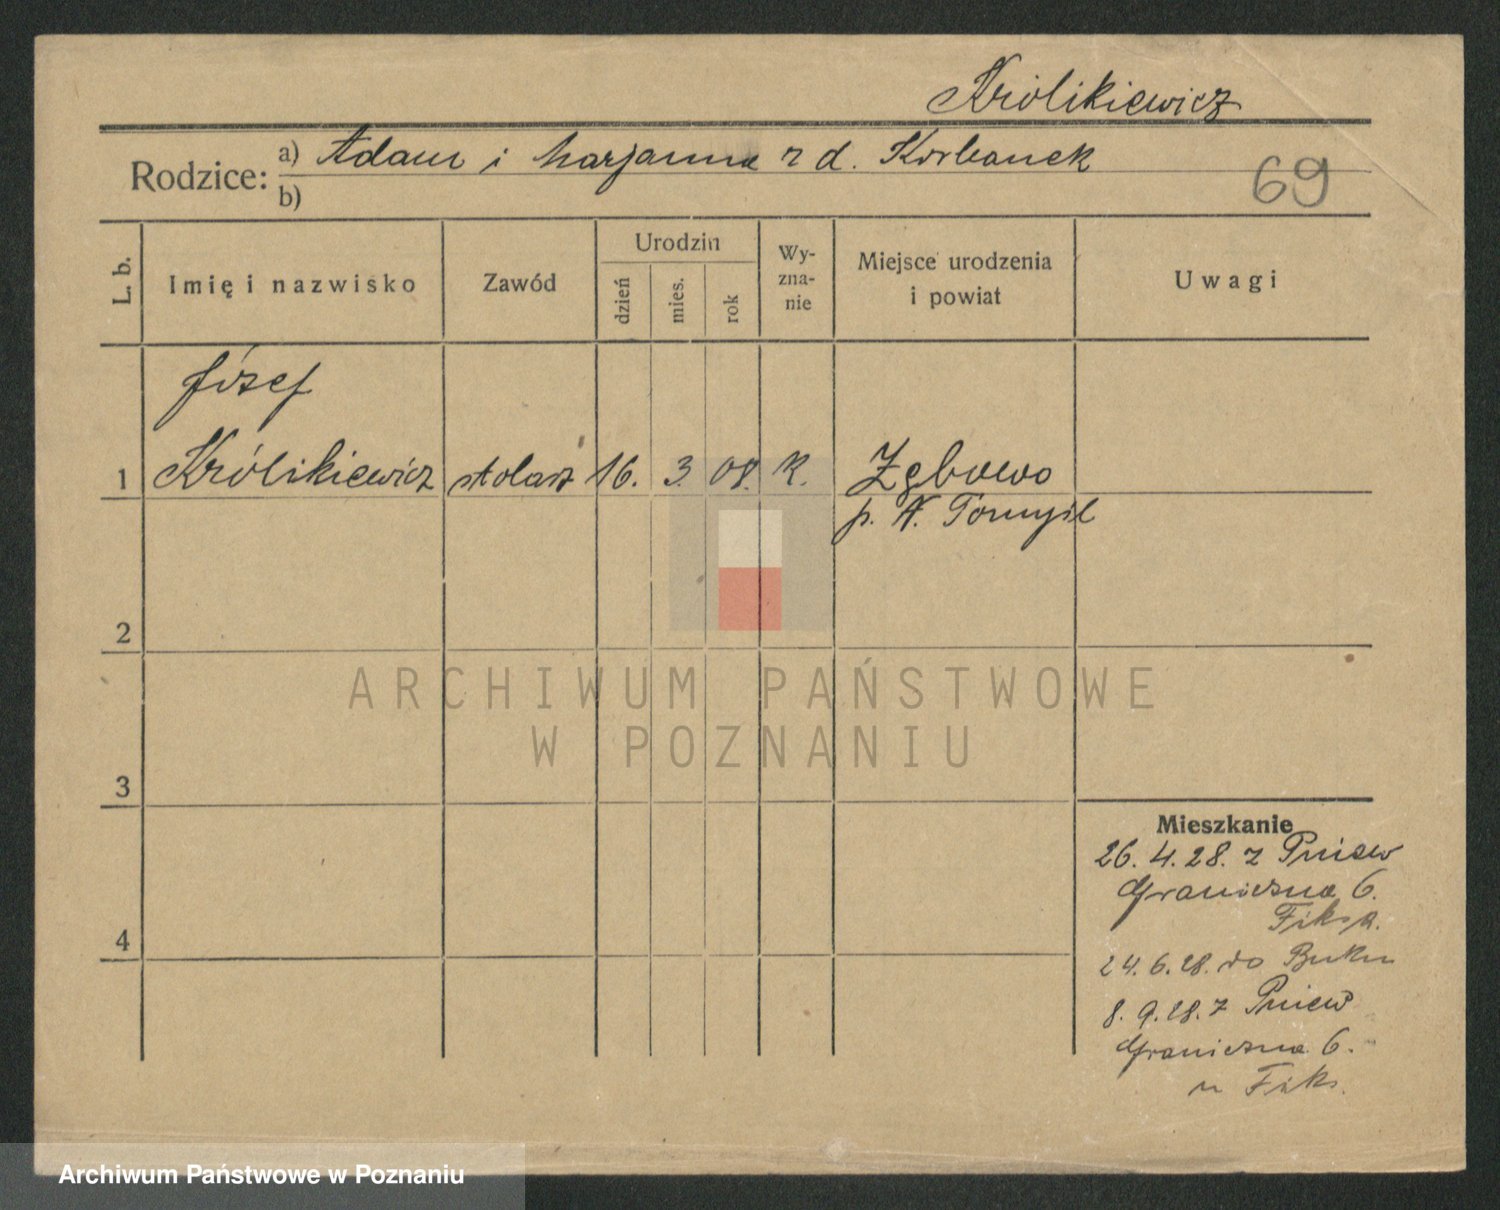 Królikiewicz
Rodzice: a) Adam i Marjanna z d. Korbanek
b)
69
L. b.
Imię i nazwisko
Zawód
Urodzin
dzień
mies.
rok
Wy-
zna-
nie
Miejsce urodzenia
i powiat
Uwagi
Józef
1 Królikiewicz stolarz 16. 3. 08. K. Zębowo
p. N. Tomyśl
2
3
4
Mieszkanie
26. 4. 28. z Pniew
Graniczna 6.
24. 6. 28. do Buku
8. 9. 28. z Pniew
Graniczna 6.
u Fiks.
ARCHIWUM PAŃSTWOWE
W POZNANIU
Archiwum Państwowe w Poznaniu